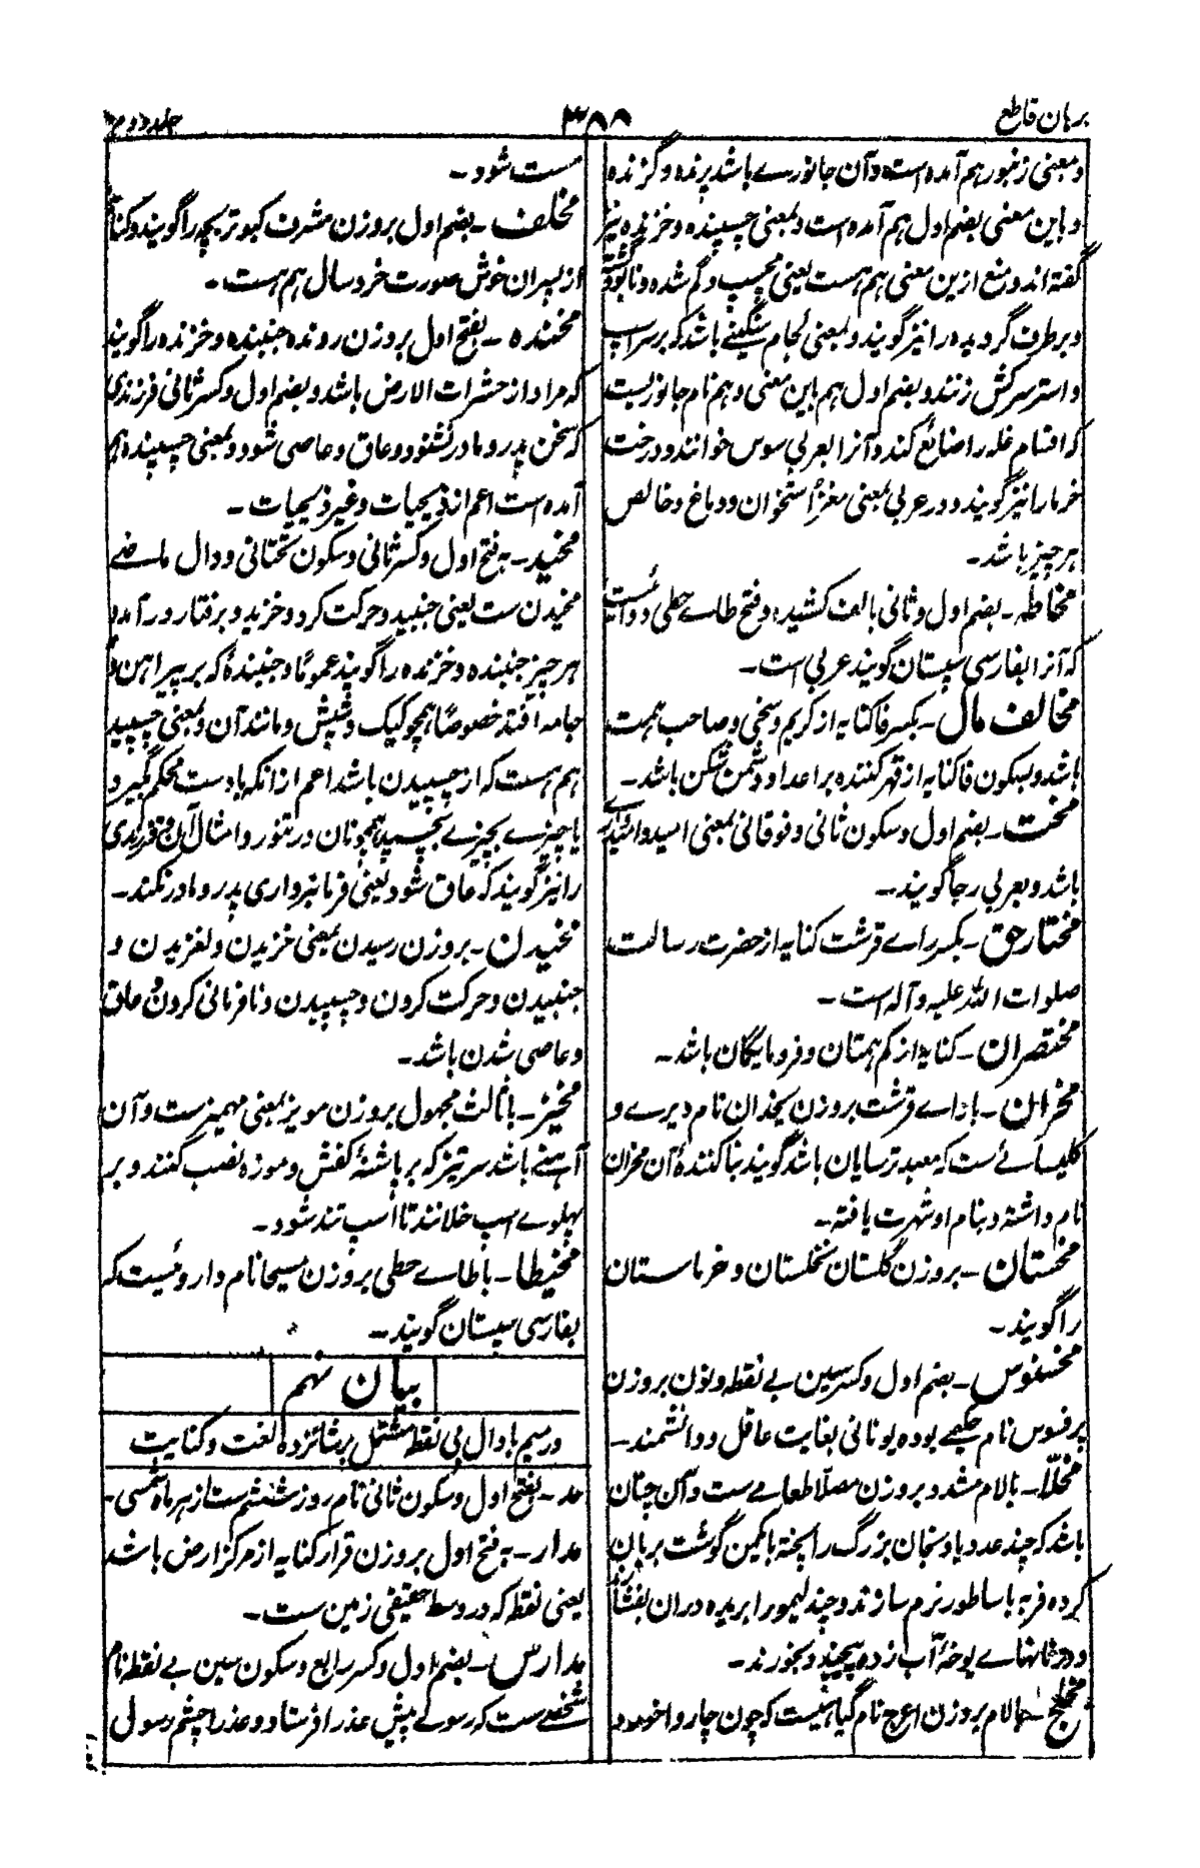 برہان قاطع
۳۸۸
جلد دوم
و معنی زنبور ہم آمدہ است و آن جانورے باشد پرندہ و گزندہ
و باین معنی بضم اول ہم آمدہ است و بمعنی چسپندہ و خزندہ نیز
گفتہ اند و منع ازین معنی ہم ہست یعنی مچسپ و گم شدہ و نابود گشتہ
و برطرف گردیدہ را نیز گویند و بمعنی لجام سنگینے باشد کہ بر سر اسپ
و استر سرکش زنند و بضم اول ہم باین معنی و ہم نام جانوریست
کہ اقسام غلہ را ضایع کند و آنرا بعربی سوس خوانند و درخت
خرما را نیز گویند و در عربی بمعنی مغز استخوان و دماغ و خالص
ہر چیز باشد۔
مخاطہ۔ بضم اول و ثانی بالف کشیدہ و فتح طاے حطی دوائیست
کہ آنرا بفارسی سپستان گویند عربی است۔
مخالف مال۔ بکسر فا کنایہ از کریم و سخی و صاحب ہمت
باشد و بسکون فا کنایہ از قہر کنندہ بر اعدا و دشمن شکن باشد۔
مخت۔ بضم اول و سکون ثانی و فوقانی بمعنی امید و امیدواری
باشد و بعربی رجا گویند۔
مختار حق۔ بکسر راے قرشت کنایہ از حضرت رسالت
صلوات اللہ علیہ و آلہ است۔
مختصران۔ کنایہ از کم ہمتان و فرومایگان باشد۔
مخران۔ با راے قرشت بروزن یخدان نام دیرے و
کلیسائے ست کہ معبد ترسایان باشد گویند بنا کنندۂ آن مخران
نام داشتہ و بنام او شہرت یافتہ۔
مخستان۔ بروزن گلستان نخلستان و خرماستان
را گویند۔
مخسنوس۔ بضم اول و کسر سین بے نقطہ و نون بروزن
پرفسوس نام حکیمے بودہ یونانی بغایت عاقل و دانشمند۔
مخلّا۔ بالام مشدد بروزن مصلّا طعامے ست و آن چنان
باشد کہ چند عدد بادنجان بزرگ را پختہ با یکمن گوشت بریان
کردہ فربہ با ساطور نرم سازند و چند لیمو را بریدہ دران بفشارند
و در نانہاے یوخۂ آب زدہ پیچند و بخورند۔
مخلج۔ بالام بروزن اعرج نام گیاہیست کہ چون چاروا خورد
مست شود۔
مخلف۔ بضم اول بروزن مشرف کبوتر بچہ را گویند و کنایہ
از پسران خوش صورت خرد سال ہم ہست۔
مخندہ۔ بفتح اول بروزن روندہ جنبندہ و خزندہ را گویند
کہ مراد از حشرات الارض باشد و بضم اول و کسر ثانی فرزندی
کہ سخن پدر و مادر نشنود و عاق و عاصی شود و بمعنی چسپندہ ہم
آمدہ است اعم از ذیحیات و غیر ذیحیات۔
مخید۔ بہ فتح اول و کسر ثانی و سکون تحتانی و دال ماضے
مخیدن ست یعنی جنبید و حرکت کرد و خزید و برفتار در آمد و
ہر چیز جنبندہ و خزندہ را گویند عموماً و جنبندۂ کہ بر پیراہن و
جامہ افتد خصوصاً ہمچو کیک و شپش و مانند آن و بمعنی چسپید
ہم ہست کہ از چسپیدن باشد اعم از انکہ با دست محکم گیرد
یا چیزے بچیزے بچسپد ہمچو نان در تنور و امثال آن و فرزندی
را نیز گویند کہ عاق شود یعنی فرمانبرداری پدر و مادر نکند۔
مخیدن۔ بروزن رسیدن بمعنی خزیدن و لغزیدن و
جنبیدن و حرکت کردن و چسپیدن و نافرمانی کردن و عاق
و عاصی شدن باشد۔
مخیز۔ با ثالث مجہول بروزن مویز بمعنی مہمیزست و آن
آہنے باشد سرتیز کہ بر پاشنۂ کفش و موزہ نصب کنند و بر
پہلوے اسپ خلانند تا اسپ تند شود۔
مخیطا۔ با طاے حطی بروزن مسیحا نام داروئیست کہ
بفارسی سپستان گویند۔
بیان نہم
در میم با دال بی نقطہ مشتمل بر شانزدہ لغت و کنایت
مد۔ بفتح اول و سکون ثانی نام روز ششم ست از ہر ماہ شمسی۔
مدار۔ بہ فتح اول بروزن قرار کنایہ از مرکز ارض باشد
یعنی نقطہ کہ در وسط حقیقی زمین ست۔
مدارس۔ بضم اول و کسر رابع و سکون سین بے نقطہ نام
شخصے ست کہ رسولے پیش عذرا فرستاد و عذرا چشم رسول